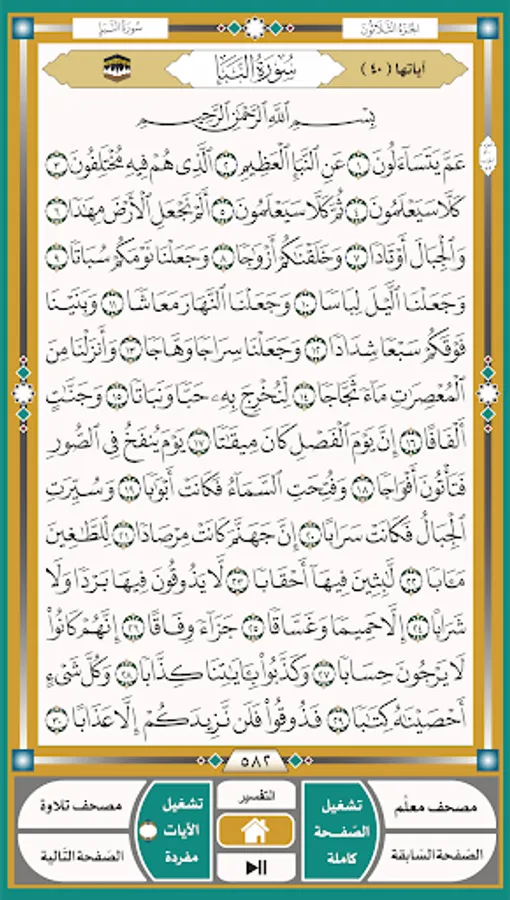 الجزء الثلاثون
سورة النبإ
آياتها (٤٠)
سُورَةُ النَّبَإِ
بِسْمِ ٱللَّهِ ٱلرَّحْمَٰنِ ٱلرَّحِيمِ
عَمَّ يَتَسَآءَلُونَ ١ عَنِ ٱلنَّبَإِ ٱلْعَظِيمِ ٢ ٱلَّذِى هُمْ فِيهِ مُخْتَلِفُونَ ٣
كَلَّا سَيَعْلَمُونَ ٤ ثُمَّ كَلَّا سَيَعْلَمُونَ ٥ أَلَمْ نَجْعَلِ ٱلْأَرْضَ مِهَٰدًا ٦
وَٱلْجِبَالَ أَوْتَادًا ٧ وَخَلَقْنَٰكُمْ أَزْوَٰجًا ٨ وَجَعَلْنَا نَوْمَكُمْ سُبَاتًا ٩
وَجَعَلْنَا ٱلَّيْلَ لِبَاسًا ١٠ وَجَعَلْنَا ٱلنَّهَارَ مَعَاشًا ١١ وَبَنَيْنَا
فَوْقَكُمْ سَبْعًا شِدَادًا ١٢ وَجَعَلْنَا سِرَاجًا وَهَّاجًا ١٣ وَأَنزَلْنَا مِنَ
ٱلْمُعْصِرَٰتِ مَآءً ثَجَّاجًا ١٤ لِّنُخْرِجَ بِهِۦ حَبًّا وَنَبَاتًا ١٥ وَجَنَّٰتٍ
أَلْفَافًا ١٦ إِنَّ يَوْمَ ٱلْفَصْلِ كَانَ مِيقَٰتًا ١٧ يَوْمَ يُنفَخُ فِى ٱلصُّورِ
فَتَأْتُونَ أَفْوَاجًا ١٨ وَفُتِحَتِ ٱلسَّمَآءُ فَكَانَتْ أَبْوَٰبًا ١٩ وَسُيِّرَتِ
ٱلْجِبَالُ فَكَانَتْ سَرَابًا ٢٠ إِنَّ جَهَنَّمَ كَانَتْ مِرْصَادًا ٢١ لِّلطَّٰغِينَ
مَـَٔابًا ٢٢ لَّٰبِثِينَ فِيهَآ أَحْقَابًا ٢٣ لَّا يَذُوقُونَ فِيهَا بَرْدًا وَلَا
شَرَابًا ٢٤ إِلَّا حَمِيمًا وَغَسَّاقًا ٢٥ جَزَآءً وِفَاقًا ٢٦ إِنَّهُمْ كَانُوا۟
لَا يَرْجُونَ حِسَابًا ٢٧ وَكَذَّبُوا۟ بِـَٔايَٰتِنَا كِذَّابًا ٢٨ وَكُلَّ شَىْءٍ
أَحْصَيْنَٰهُ كِتَٰبًا ٢٩ فَذُوقُوا۟ فَلَن نَّزِيدَكُمْ إِلَّا عَذَابًا ٣٠
٥٨٢
مصحف معلّم
تشغيل الصّفحة كاملة
التفسير
تشغيل الآيات مفردة
مصحف تلاوة
الصّفحة السّابقة
الصّفحة التّالية